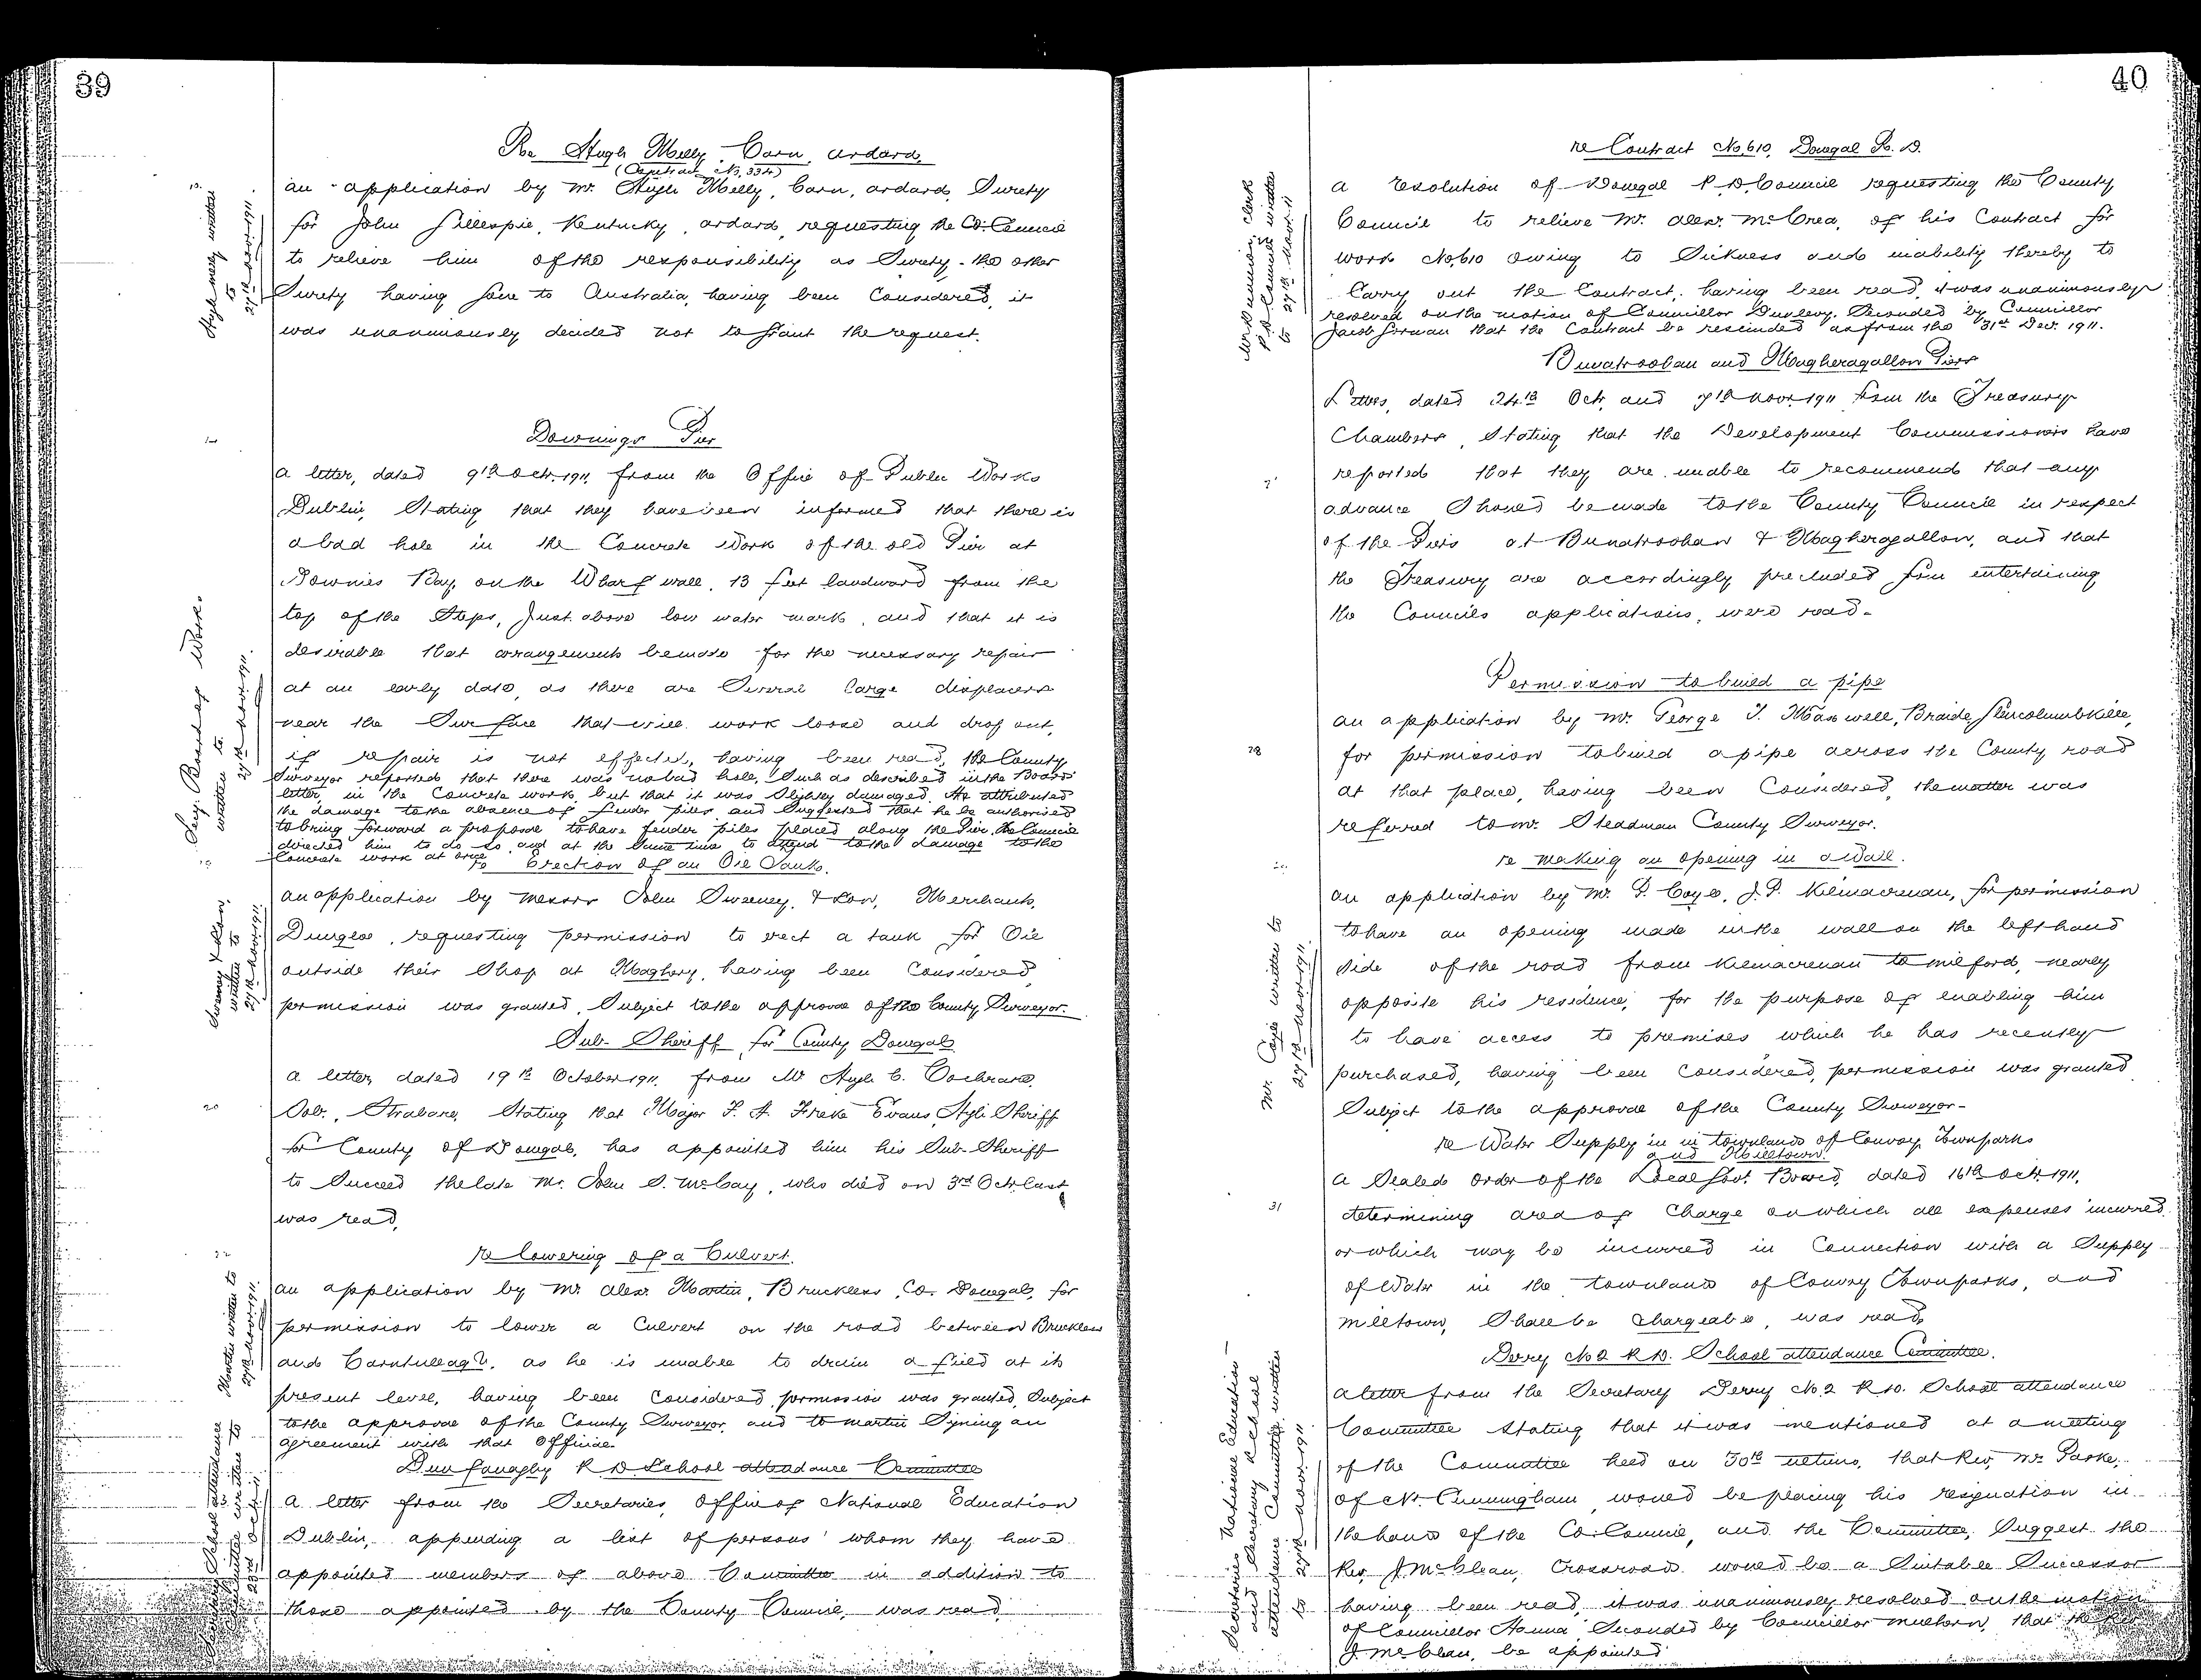 39
Re Hugh Melly, Carn, Ardara.
(Contract No. 334)
An application by Mr. Hugh Melly, Carn, Ardara, Surety
for John Gillespie, Kentucky, Ardara, requesting the Co. Council
to relieve him of the responsibility as Surety - the other
Surety having gone to Australia, having been Considered, it
was unanimously decided not to grant the request.
Hugh Melly written
to
27th Novr. 1911.
Downings Pier
A letter, dated 9th Octr. 1911, from the Office of Public Works
Dublin, Stating that they have been informed that there is
a bad hole in the Concrete Work of the old Pier at
Downies Bay, on the Wharf wall, 13 feet landward from the
top of the Steps, Just above low water mark, and that it is
desirable that arrangements be made for the necessary repair
at an early date, as there are Several large displacers
near the Surface that will work loose and drop out,
if repair is not effected, having been read, the County
Surveyor reported that there was no bad hole, Such as described in the Boards'
letter in the Concrete work, but that it was Slightly damaged. He attributed
the damage to the absence of fender piles and Suggested that he be authorised
to bring forward a proposal to have fender piles placed along the Pier. The Council
directed him to do so and at the Same time to attend to the damage to the
Concrete work at once.
Secy. Board of Works
written to
27th Novr. 1911.
re Erection of an Oil Tank.
An application by Messrs John Sweeney & Son, Merchants,
Dungloe, requesting permission to erect a tank for Oil
outside their Shop at Maghery, having been Considered,
permission was granted, Subject to the approval of the County Surveyor.
Sweeney & Son,
written to
27th Novr. 1911.
Sub-Sheriff for County Donegal
A letter, dated 19th October 1911, from Mr Hugh C. Cochrane,
Solr., Strabane, Stating that Major P. A. Freke Evans, High Sheriff
for County of Donegal, has appointed him his Sub-Sheriff
to Succeed the late Mr. John S. McCay, who died on 3rd Octr. last
was read.
20
re lowering of a Culvert.
22
An application by Mr. Alexr. Martin, Bruckless, Co. Donegal, for
permission to lower a Culvert on the road between Bruckless
and Carntullagh, as he is unable to drain a field at its
present level, having been Considered, permission was granted, Subject
to the approval of the County Surveyor, and to Martin Signing an
agreement with that Official.
Martin written to
27th Novr. 1911.
Dunfanaghy R D School Attendance Committee
A letter from the Secretaries, Office of National Education
Dublin, appending a list of persons whom they have
appointed members of above Committee in addition to
those appointed by the County Council, was read.
School attendance
Committee written to
40
re Contract No. 610, Donegal R. D.
A resolution of Donegal R. D. Council requesting the County
Council to relieve Mr. Alexr. McCrea, of his Contract for
work No. 610 owing to Sickness and inability thereby to
Carry out the Contract, having been read, it was unanimously
resolved on the motion of Councillor Dunlevy, Seconded by Councillor
Jacob Gorman that the Contract be rescinded as from the 31st Decr. 1911.
Clerk
R. D. Council written
to 27th Novr. 11
Bunatroohan and Magheragallon Piers
Letters, dated 24th Oct. and 7th Novr. 1911 from the Treasury
Chambers, Stating that the Development Commissioners have
reported that they are unable to recommend that any
advance Should be made to the County Council in respect
of the Piers at Bunatroohan & Magheragallon, and that
the Treasury are accordingly precluded from entertaining
the Councils applications, were read.
Permission to build a pipe
28
An application by Mr. George J. Maxwell, Braide, Glencolumbkille,
for permission to build a pipe across the County road
at that place, having been Considered, the matter was
referred to Mr. Steadman County Surveyor.
re making an opening in a Wall.
An application by Mr. P. Coyle, J.P. Kilmacrenan, for permission
to have an opening made in the wall on the left hand
Side of the road from Kilmacrenan to Milford, nearly
opposite his residence, for the purpose of enabling him
to have access to premises which he has recently
purchased, having been Considered, permission was granted
Subject to the approval of the County Surveyor.
Mr. Coyle written to
27th Novr. 1911.
re Water Supply in in townlands of Convoy Townparks
and Milltown.
A Sealed Order of the Local Govt. Board, dated 16th Octr. 1911,
31
determining area of Charge on which all expenses incurred
or which may be incurred in Connection with a Supply
of Water in the townlands of Convoy Townparks, and
Milltown, Shall be Chargeable, was read.
Derry No 2 R.D. School Attendance Committee.
A letter from the Secretary Derry No. 2 R.D. School Attendance
Committee Stating that it was mentioned at a meeting
of the Committee held on 30th ultimo, that Rev. Mr. Parke,
of Nt. Cunningham would be placing his resignation in
the hands of the Co. Council, and the Committee, Suggest the
Rev. J. McClean, Crossroads would be a Suitable Successor
having been read, it was unanimously resolved on the motion
of Councillor Hanna Seconded by Councillor that the Rev
J. McClean, be appointed
Secretaries National Education
and Secretary School
attendance Committee written
to 27th Novr. 1911